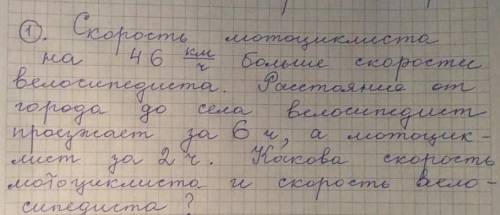 1. Скорость мотоциклиста
на 46 км/ч больше скорости
велосипедиста. Расстояние от
города до села велосипедист
проезжает за 6 ч, а мотоцик-
лист за 2 ч. Какова скорость
мотоциклиста и скорость вело-
сипедиста?